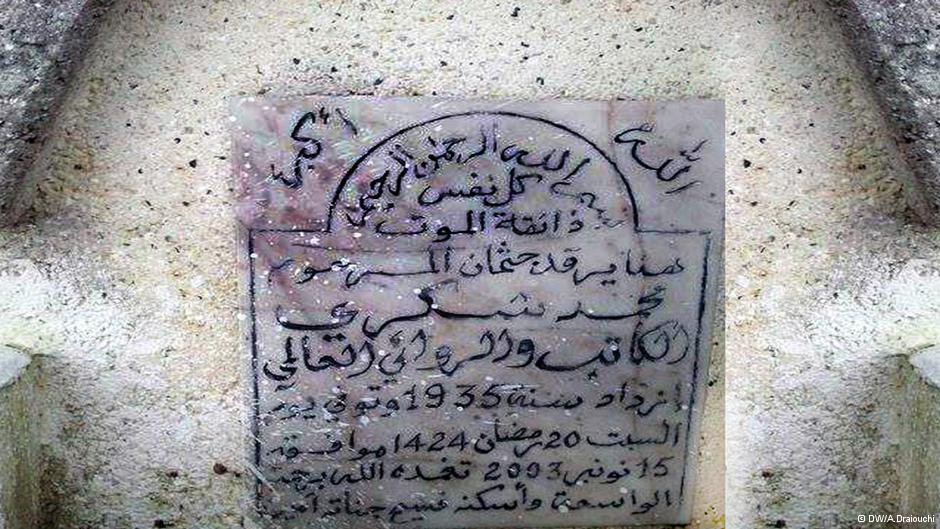 الله أكبر
بسم الله الرحمن الرحيم
كل نفس
ذائقة الموت
هنا يرقد جثمان المرحوم
محمد شكري
الكاتب والروائي العالمي
ازداد سنة 1935 وتوفي يوم
السبت 20 رمضان 1424 موافق
15 نونبر 2003 تغمده الله برحمته
الواسعة وأسكنه فسيح جناته آمين
© DW/A.Draiouchi